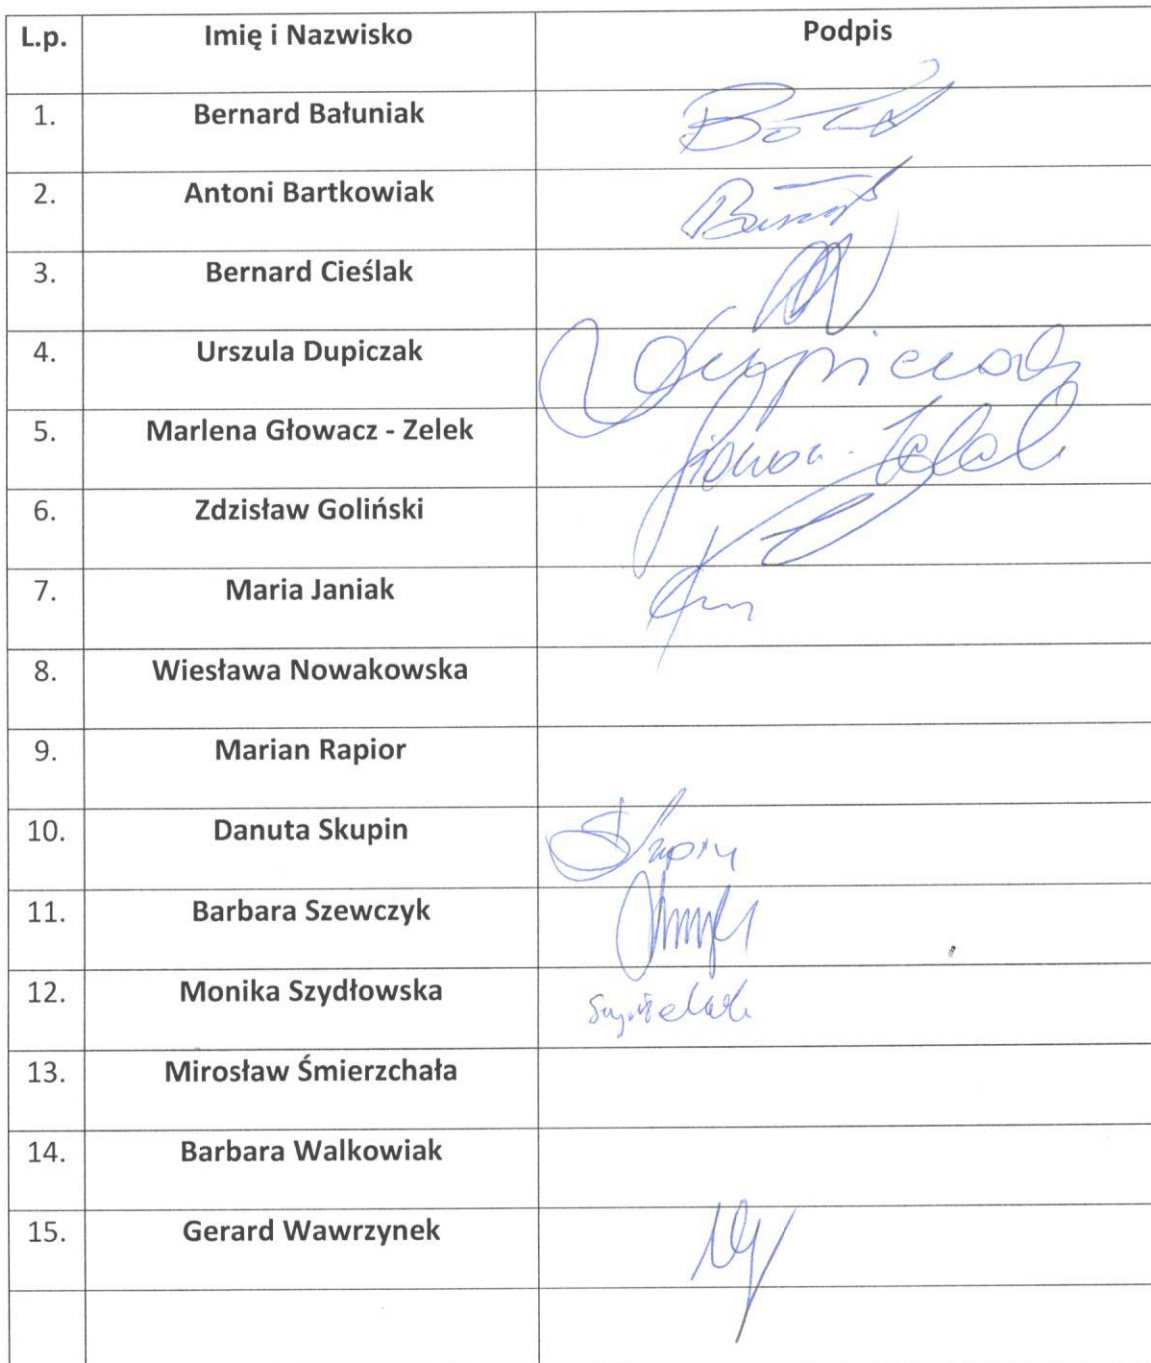 L.p. Imię i Nazwisko Podpis
1. Bernard Bałuniak
2. Antoni Bartkowiak
3. Bernard Cieślak
4. Urszula Dupiczak
5. Marlena Głowacz - Zelek
6. Zdzisław Goliński
7. Maria Janiak
8. Wiesława Nowakowska
9. Marian Rapior
10. Danuta Skupin
11. Barbara Szewczyk
12. Monika Szydłowska
13. Mirosław Śmierzchała
14. Barbara Walkowiak
15. Gerard Wawrzynek